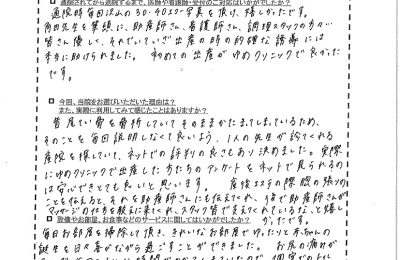 通院されてから退院するまで、医師や看護師・受付のご対応はいかがでしたか?
通院時毎回沢山の3D・4Dエコー写真を頂け、嬉しかったです。
角田先生を筆頭に、助産師さん、看護師さん、調理スタッフの方々…
皆さん優しく、それでいていざ出産の時の的確な誘導には
本当に助けられました。初めての出産がゆめクリニックで良かった
です。
今回、当院をお選びいただいた理由は?
また、実際に利用してみて感じたことはありますか?
昔尾てい骨を骨折していてそのままかたまってしまっているため、
そのことを毎回説明しなくて良いよう、1人の先生が診てくれる
産院を探していて、ネットでの評判の良さもあり決めました。実際
にゆめクリニックで出産した方たちのアンケートをネットで見られるの
は安心できとても良いと思います。産後エステの際胸の張りの
ことを伝えると、それを助産師さんにも伝えてくれ、うまで助産師さんが
マッサージの仕方を教えに来てくれ、スタッフ皆で支えてくれているな、と嬉し
かったです。
設備やお部屋、お食事などのサービスに関してはいかがでしたか?
毎日お部屋を掃除して頂き、きれいなお部屋でゆったりと赤ちゃんの
誕生を日々喜びながら過ごすことができました。お尻の痛みが